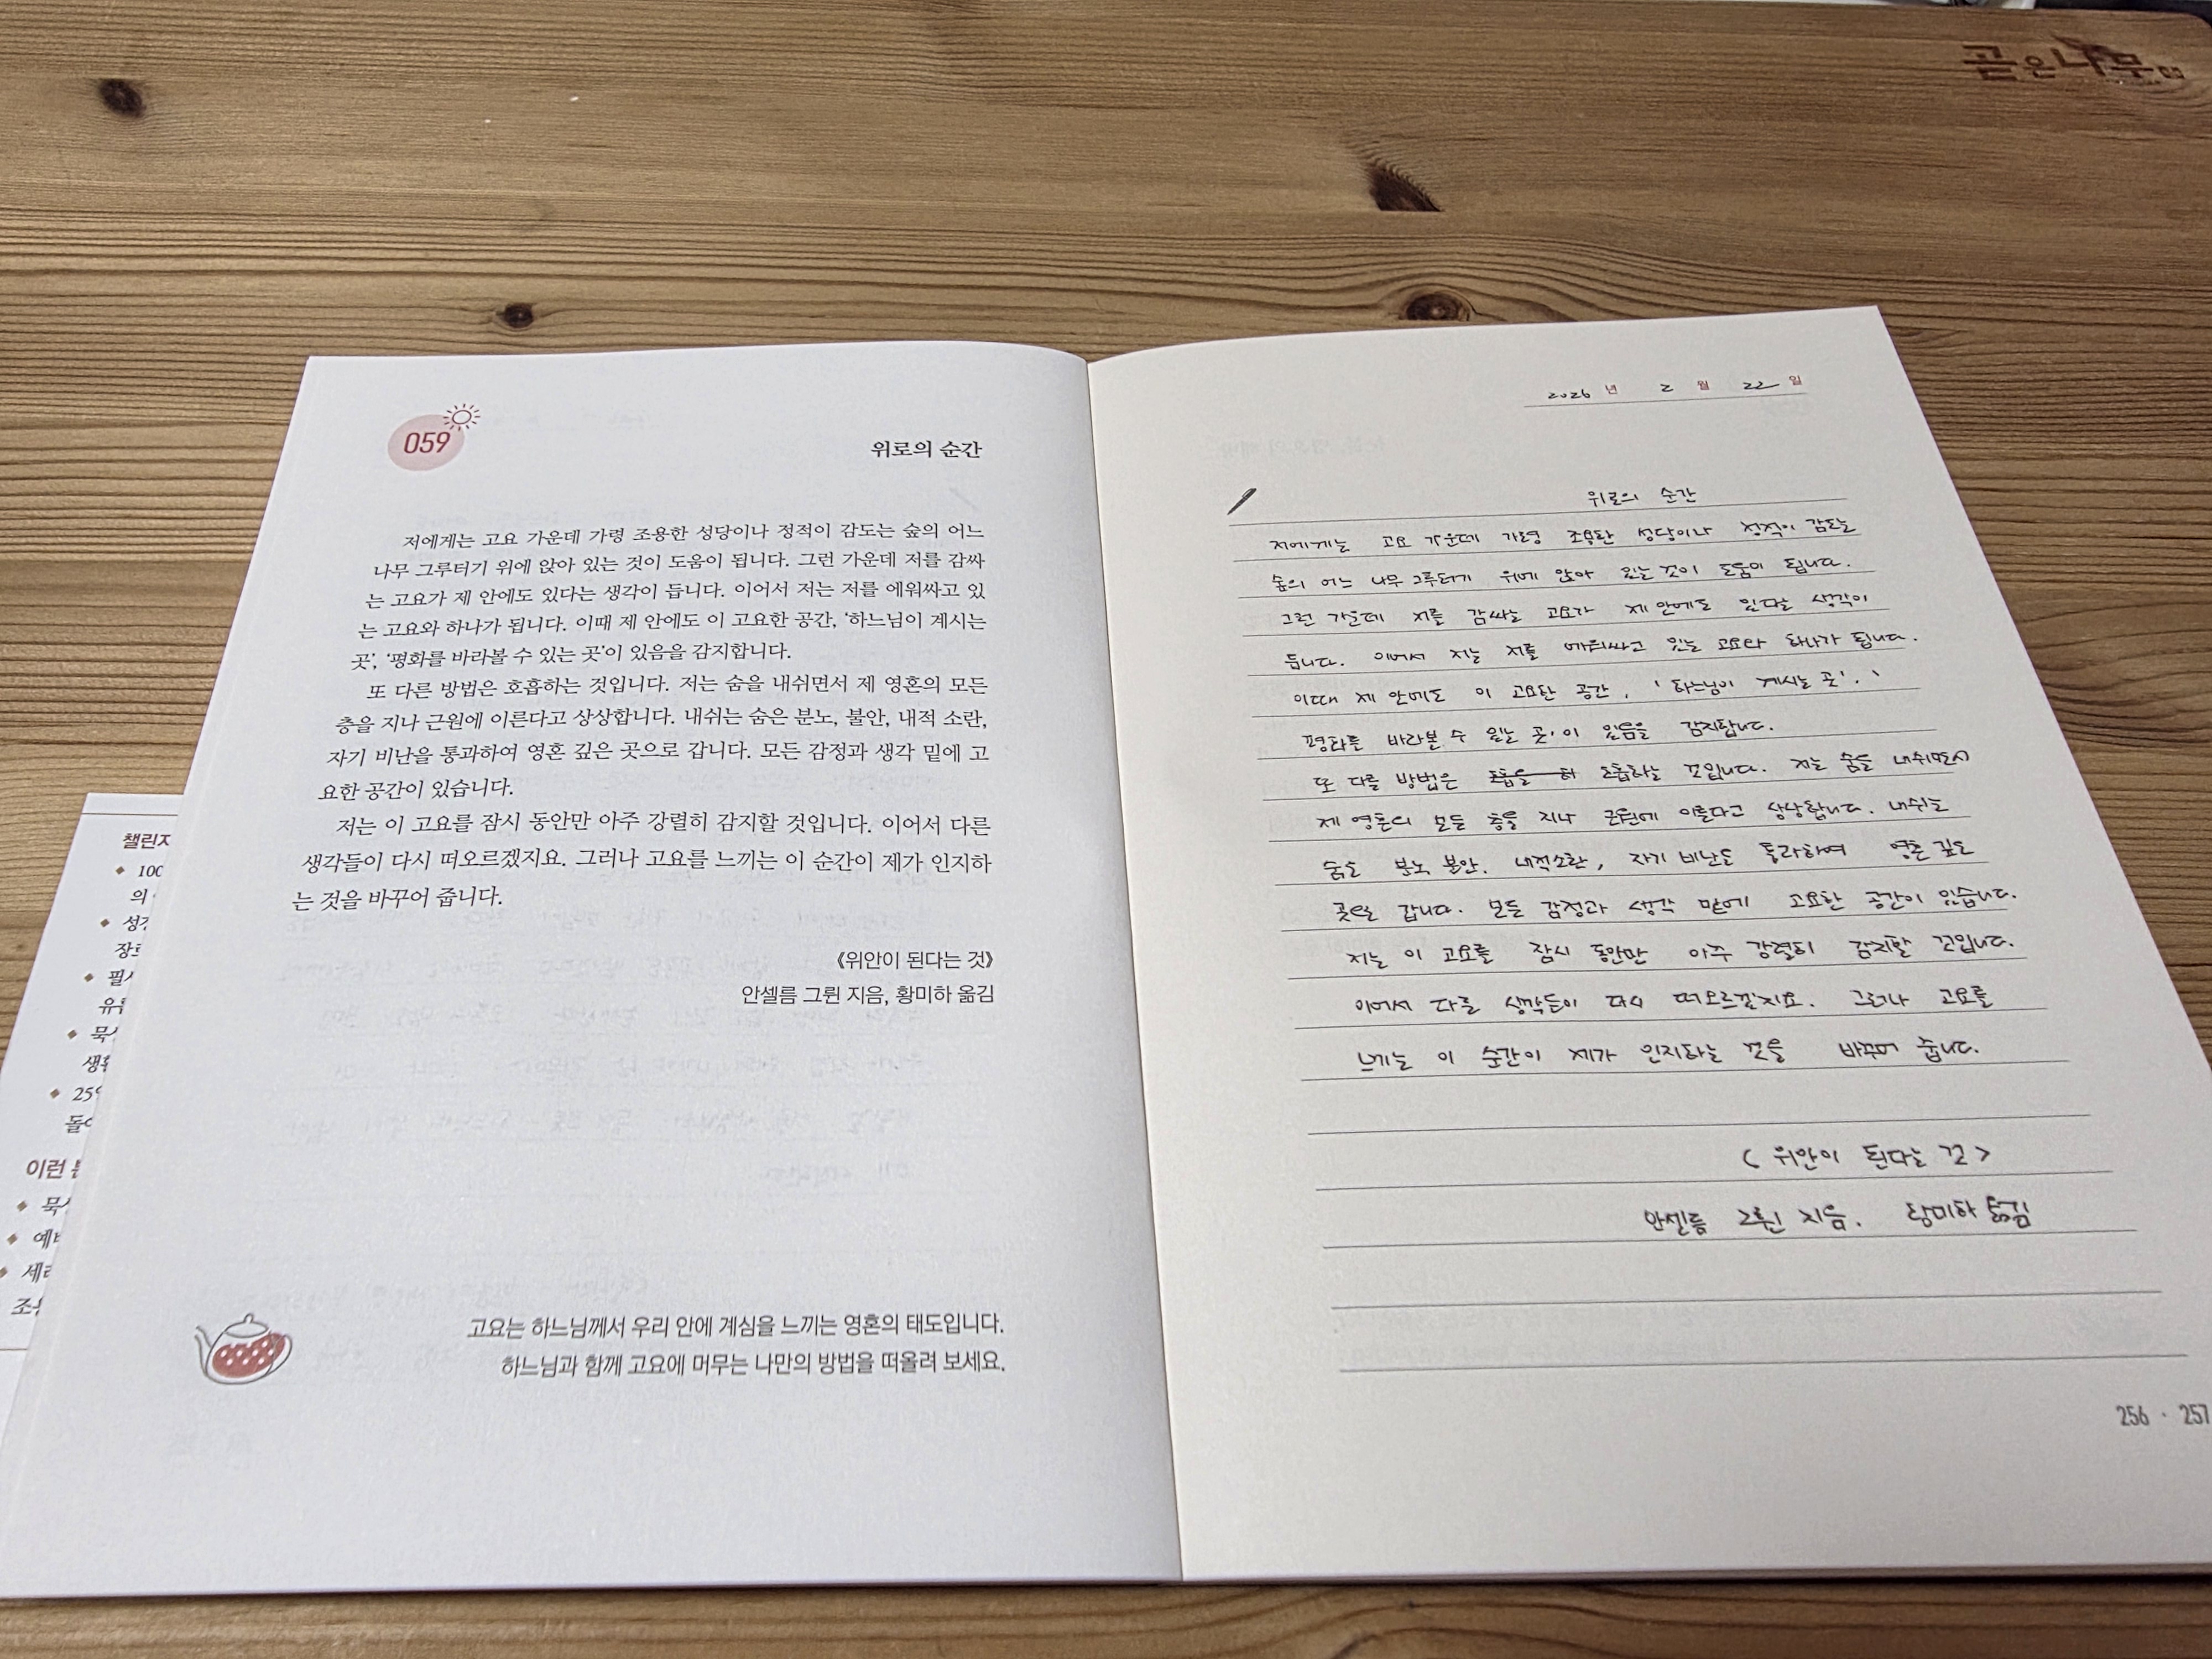 곧은나무
059
위로의 순간
저에게는 고요 가운데 가령 조용한 성당이나 정적이 감도는 숲의 어느
나무 그루터기 위에 앉아 있는 것이 도움이 됩니다. 그런 가운데 저를 감싸
는 고요가 제 안에도 있다는 생각이 듭니다. 이어서 저는 저를 에워싸고 있
는 고요와 하나가 됩니다. 이때 제 안에도 이 고요한 공간, ‘하느님이 계시는
곳’, ‘평화를 바라볼 수 있는 곳’이 있음을 감지합니다.
또 다른 방법은 호흡하는 것입니다. 저는 숨을 내쉬면서 제 영혼의 모든
층을 지나 근원에 이른다고 상상합니다. 내쉬는 숨은 분노, 불안, 내적 소란,
자기 비난을 통과하여 영혼 깊은 곳으로 갑니다. 모든 감정과 생각 밑에 고
요한 공간이 있습니다.
저는 이 고요를 잠시 동안만 아주 강렬히 감지할 것입니다. 이어서 다른
생각들이 다시 떠오르겠지요. 그러나 고요를 느끼는 이 순간이 제가 인지하
는 것을 바꾸어 줍니다.
《위안이 된다는 것》
안셀름 그륀 지음, 황미하 옮김
고요는 하느님께서 우리 안에 계심을 느끼는 영혼의 태도입니다.
하느님과 함께 고요에 머무는 나만의 방법을 떠올려 보세요.
챌린지
100
의
성경
필사
25일
이런
2026 년 2 월 22 일
위로의 순간
저에게는 고요 가운데 가령 조용한 성당이나 정적이 감도는
숲의 어느 나무 그루터기 위에 앉아 있는 것이 도움이 됩니다.
그런 가운데 저를 감싸는 고요가 제 안에도 있다는 생각이
듭니다. 이어서 저는 저를 에워싸고 있는 고요와 하나가 됩니다.
이때 제 안에도 이 고요한 공간, ‘하느님이 계시는 곳’, ‘
평화를 바라볼 수 있는 곳’이 있음을 감지합니다.
또 다른 방법은 호흡하는 것입니다. 저는 숨을 내쉬면서
제 영혼의 모든 층을 지나 근원에 이른다고 상상합니다. 내쉬는
숨은 분노 불안, 내적소란, 자기 비난도 통과하여 영혼 깊은
곳으로 갑니다. 모든 감정과 생각 밑에 고요한 공간이 있습니다.
저는 이 고요를 잠시 동안만 아주 강렬히 감지할 것입니다.
이어서 다른 생각들이 다시 떠오르겠지요. 그러나 고요를
느끼는 이 순간이 제가 인지하는 것을 바꾸어 줍니다.
< 위안이 된다는 것 >
안셀름 그륀 지음, 황미하 옮김
256 · 257